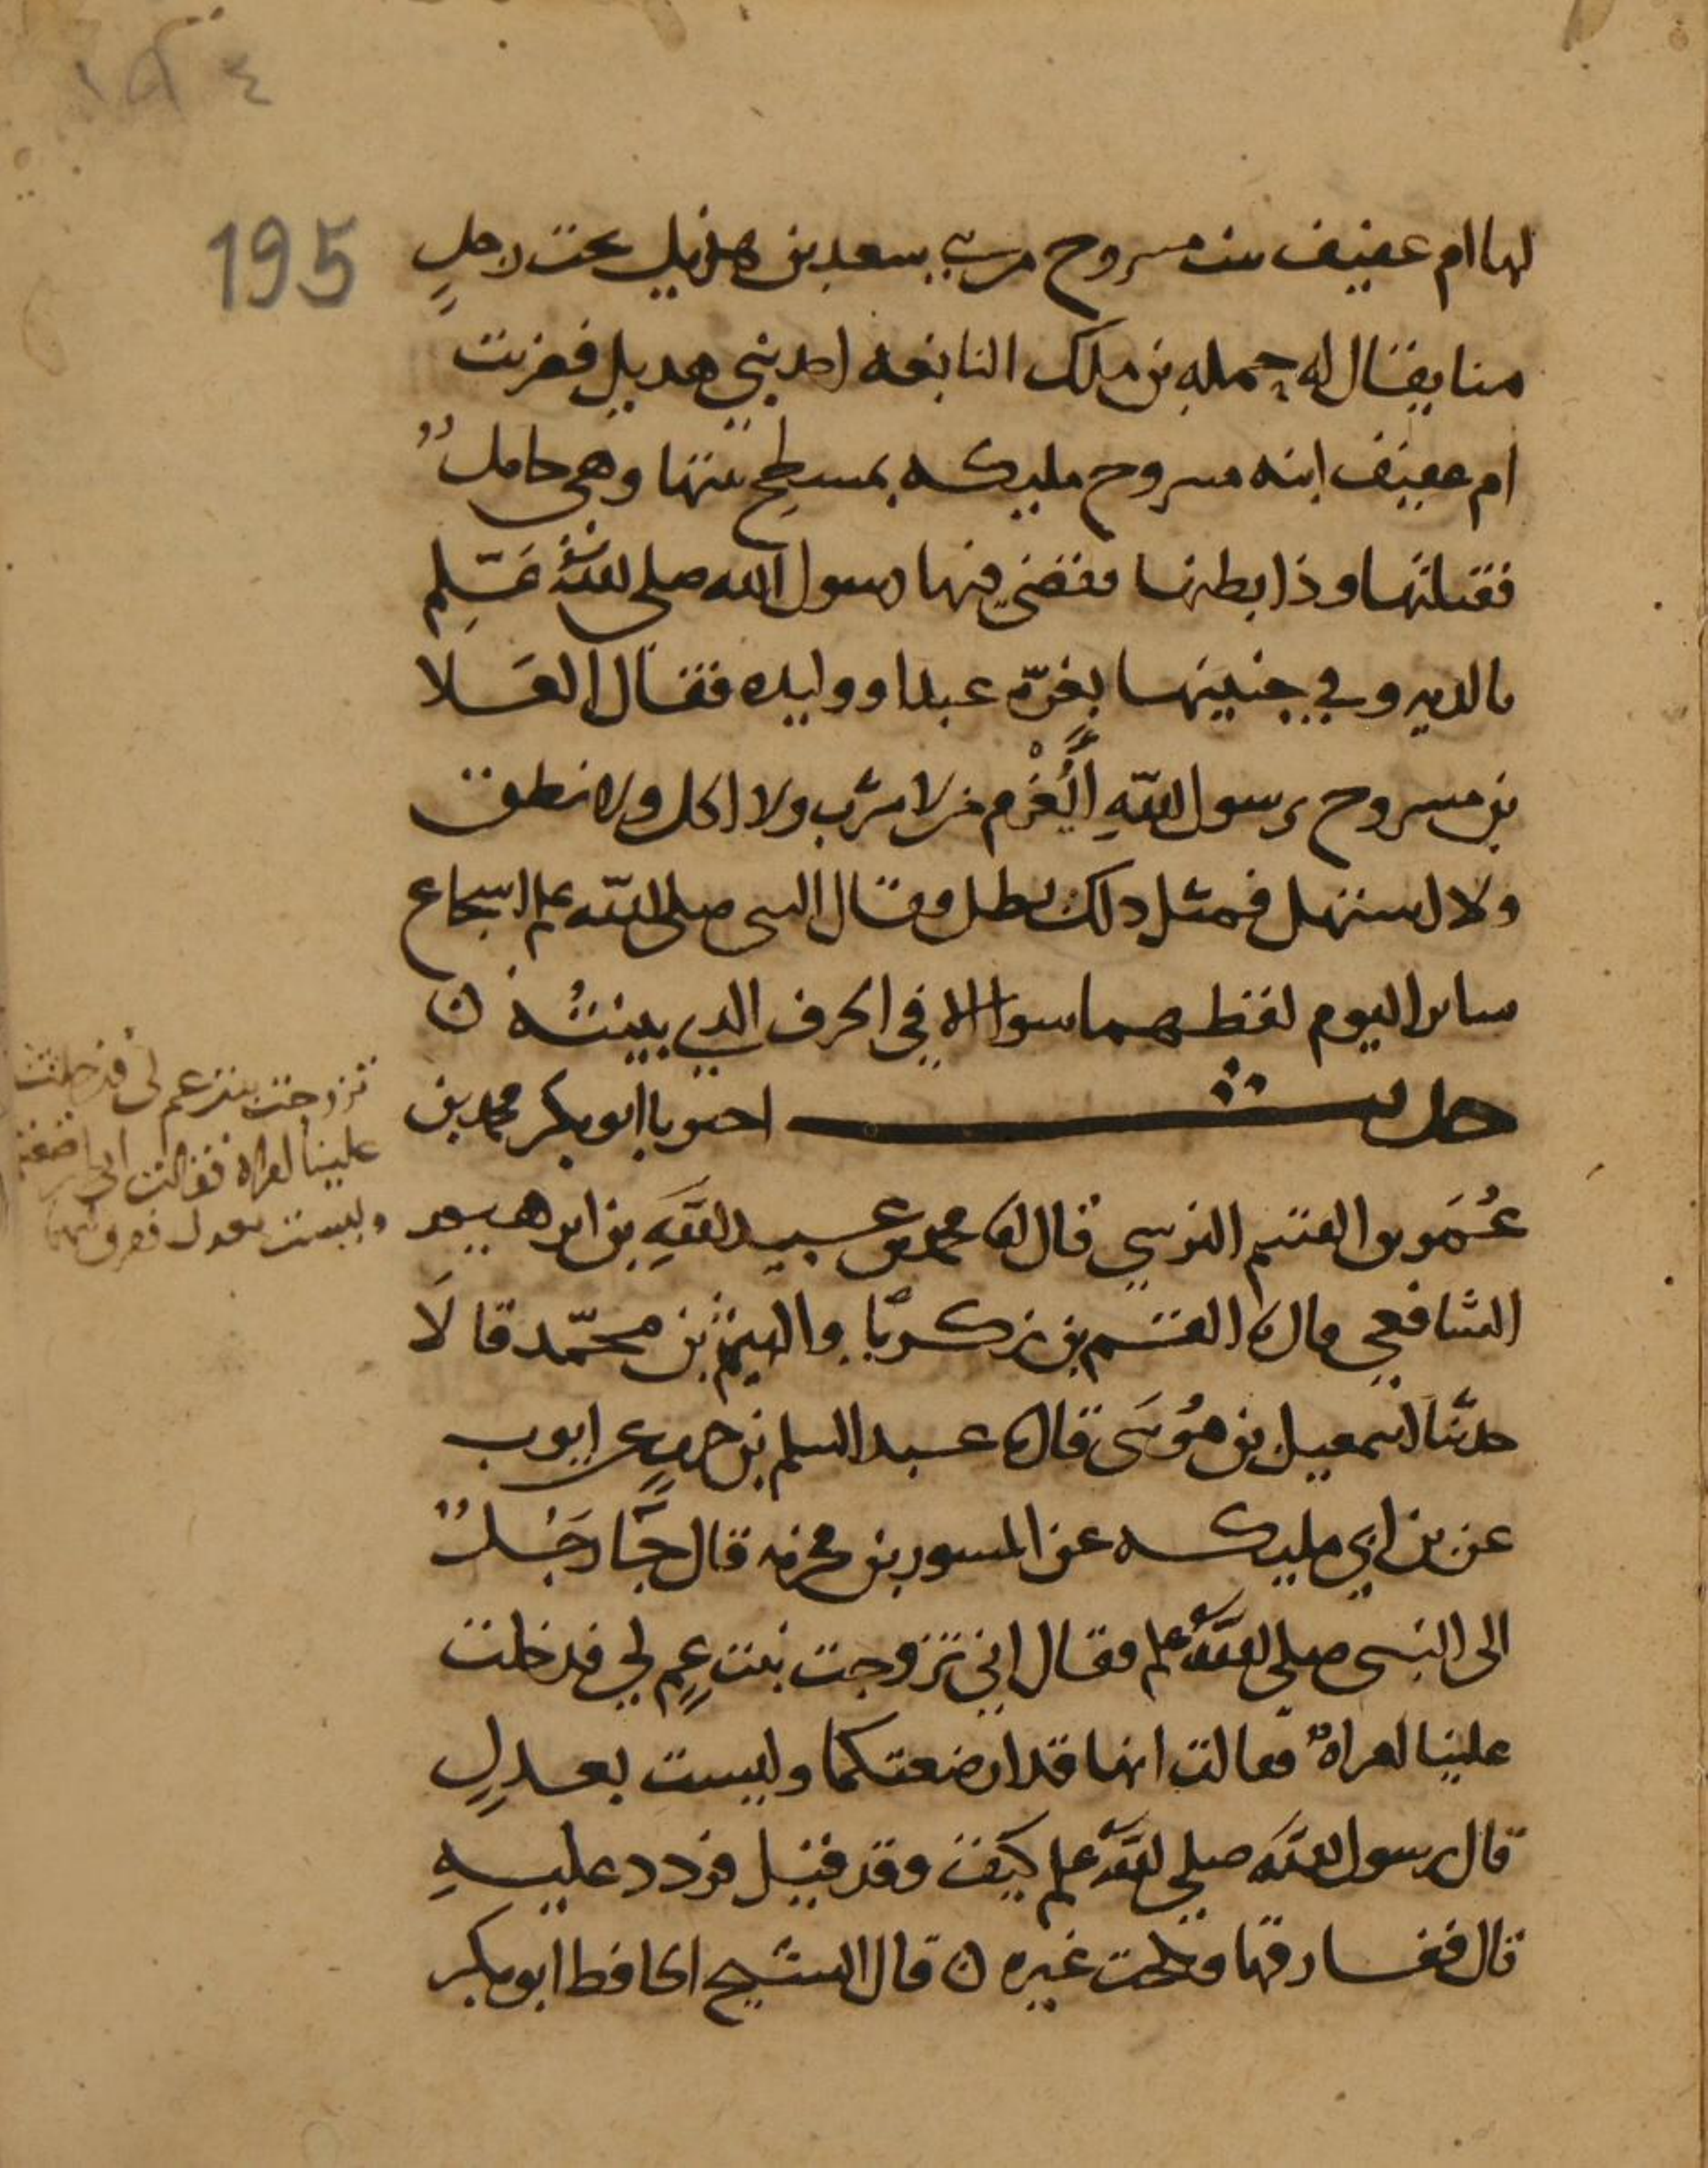 ١٩٤
195
لها ام عفيف بنت مسروح من بني سعد بن هذيل تحت رجلٍ
منا يقال له حمله بن ملك النابغه احد بني هديل فضربت
ام عفيف ابنه مسروح مليكه بمسطح بيتها وهي حاملٌ
فقتلتها وذا بطنها فقضى فيها رسول الله صلى الله عليه وسلم
بالديه وفي جنينها بغرّه عبد او وليده فقال العَلا
بن مسروح يرسول اللّهِ أَيُغْرم من لا شرب ولا اكل ولا نطق
ولا استهل فمثل ذلك بطل فقال النبي صلى اللّه علم اسجاع
سائر اليوم لفظهما سوا الا في الحرف الذي بينتُه ن
حديث اخبرنا ابو بكر محمد بن
عُمَر بن القسم النرسي قال انا محمد بن عبيد اللّهِ بن ابرهيم
الشافعي قال نا القسم بن زكريّا والهيثم بن محمّد قالَا
حدثنا اسمعيل بن مُوسَى قال نا عبد السلم بن حربٍ عن ايوب
عن بن ابي مليكه عن المسور بن مخرمه قال جَّا رَجُلٌ
الى النبي صلى اللّه علم فقال اني تزوجت بنت عمٍ لي فدخلت
علينا امراةٌ فقالت انها قد ارضعتكما وليست بعدلٍ
قال رسول اللّه صلى اللّه علم كيف وقد قيل فردد عليهِ
قال ففارقها ونكحت غيره ن قال الشيخ الحافظ ابو بكر
تزوجت بنت عم لي فدخلت
علينا امراة فقالت اني ارضعتهما
وليست بعدل ففرق بينهما